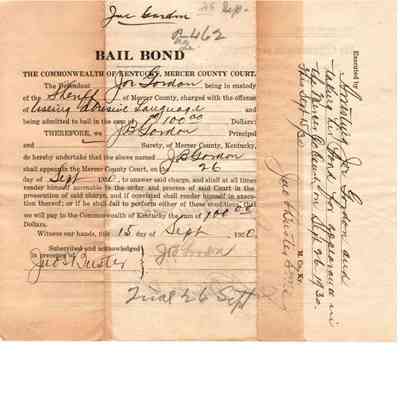 Joe Gordon
25 Sep.
P-462
BAIL BOND
THE COMMONWEALTH OF KENTUCKY, MERCER COUNTY COURT.
The Defendant Joe Gordon, being in custody
of the Sheriff of Mercer County, charged with the offense
of Useing Abusive Language and
being admitted to bail in the sum of 100 00 Dollars:
THEREFORE, we JB Gordon Principal
and Surety, of Mercer County, Kentucky,
do hereby undertake that the above named JB Gordon
shall appear in the Mercer County Court, on the 26
day of Sept 19 , to answer said charge, and shall at all times
render himself amenable to the order and process of said Court in the
prosecution of said charge, and if convicted shall render himself in execu-
tion thereof; or if he shall fail to perform either of these conditions, that
we will pay to the Commonwealth of Kentucky the sum of 100 00
Dollars.
Witness our hands, this 15 day of Sept, 1930
Subscribed and acknowledged
in presence of
Joe Gordon
Trial 26 Sept
Executed by
Joe Gordon and
taking his Bond for appearance in
the Mercer Co Court on Sept 26 1930.
This Sept 15/30
M. Co. Ky.